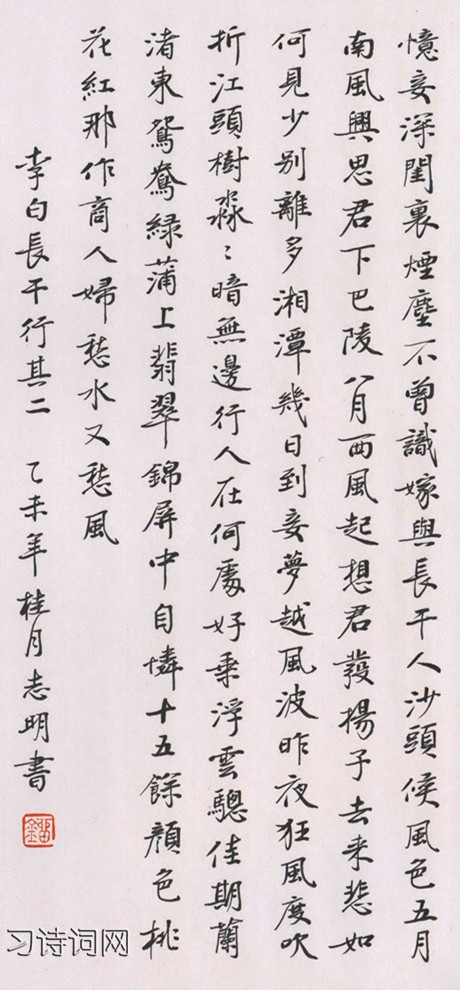 憶妾深閨裏煙塵不曾識嫁與長干人沙頭候風色五月
南風興思君下巴陵八月西風起想君發揚子去來悲如
何見少別離多湘潭幾日到妾夢越風波昨夜狂風度吹
折江頭樹淼〻暗無邊行人在何處好乘浮雲驄佳期蘭
渚東鴛鴦綠蒲上翡翠錦屏中自憐十五餘顏色桃
花紅那作商人婦愁水又愁風
李白長干行其二 乙未年桂月志明書
习诗词网